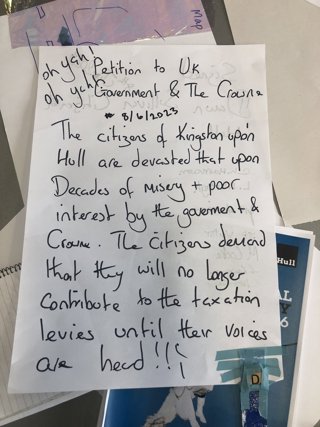 Map
oh yah!
oh yah!
Petition to UK
Government & The Crowne
* 8/6/2023
The citizens of Kingston upon
Hull are devasted that upon
Decades of misery + poor
interest by the goverment &
Crowne. The Citizens demand
that they will no longer
Contribute to the taxation
levies until their voices
are head!!!
Hull
AL
6
D